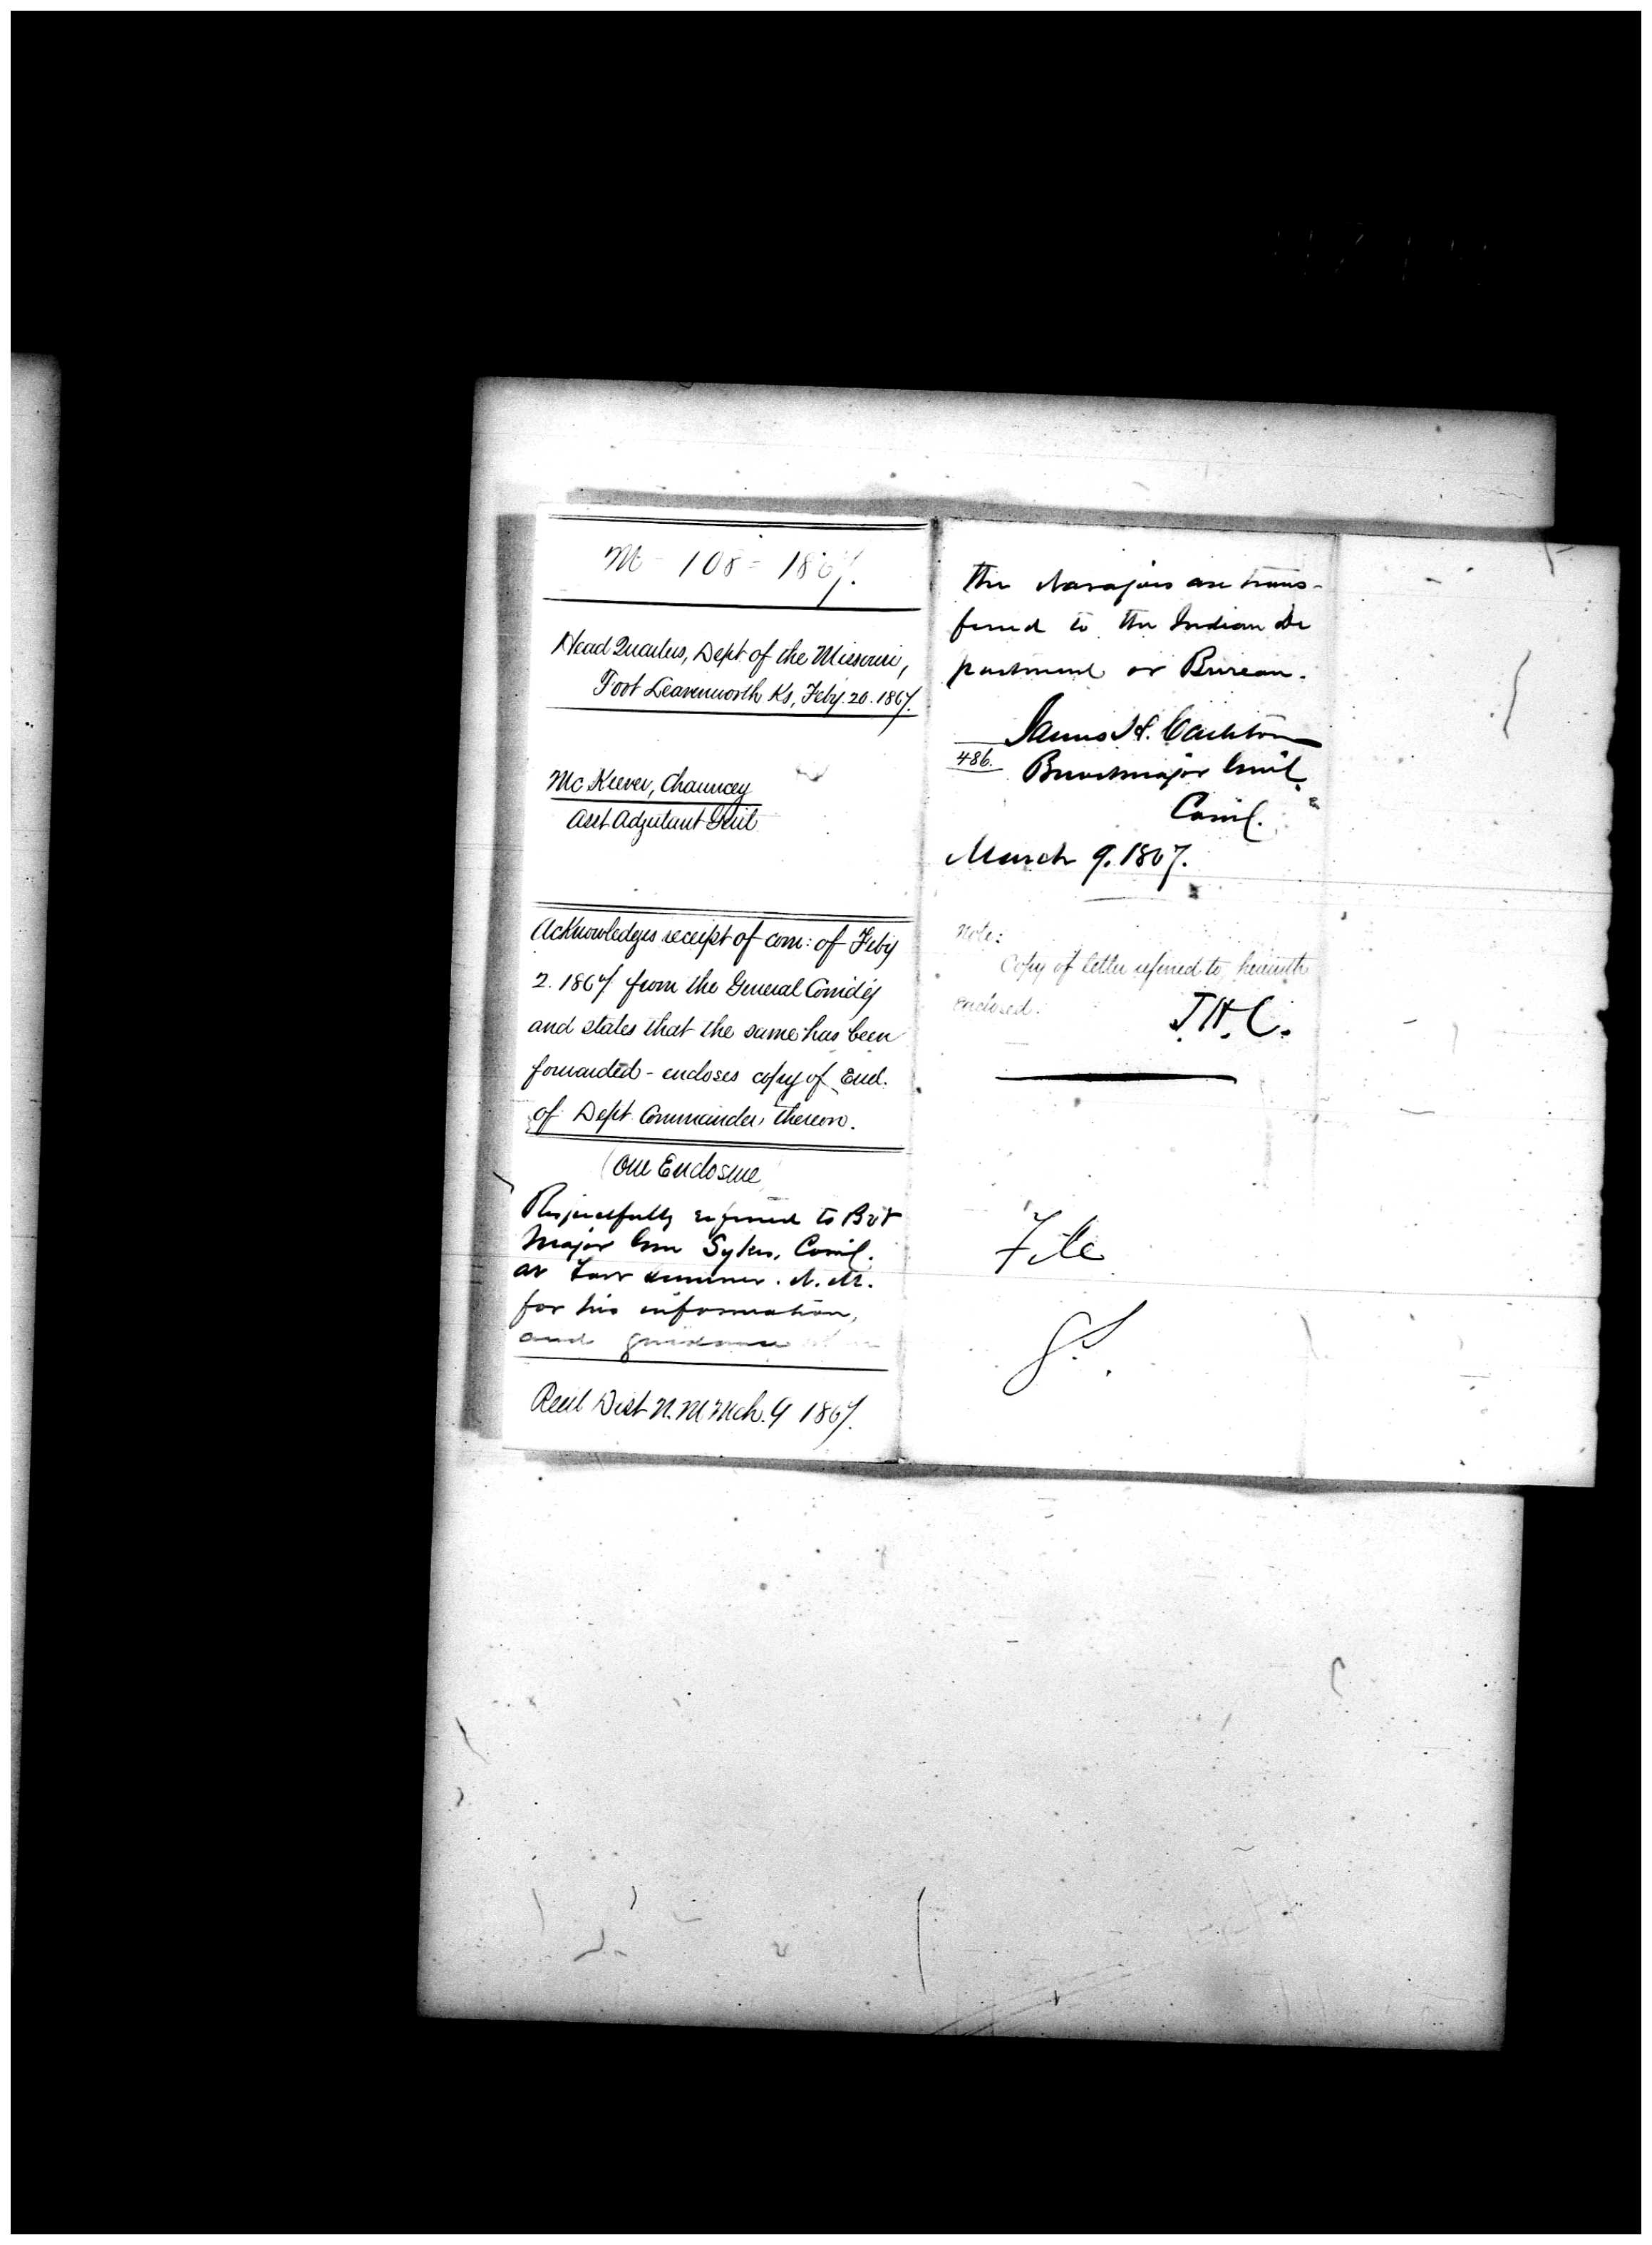 M - 108 - 1867.
Head Quarters, Dept of the Missouri,
Fort Leavenworth Ks, Feby. 20. 1867.
McKeever, Chauncey
Asst Adjutant Genl
Acknowledges receipt of com: of Feby
2. 1867 from the General Comd'g
and states that the same has been
forwarded - encloses copy of End.
of Dept Commander, thereon.
One Enclosure
Respectfully referred to Bvt
Major Gen Sykes, Comd'g.
at Fort Sumner. N. M.
for his information,
and guidance
Recd Dist N. M Mch. 9 1867.
the Navajoes are trans-
ferred to the Indian De
partment or Bureau.
James H. Carleton
486. Brevet Major Genl
Comd'g.
March 9. 1867.
Note:
Copy of letter referred to, herewith
enclosed.
J.H.C.
File